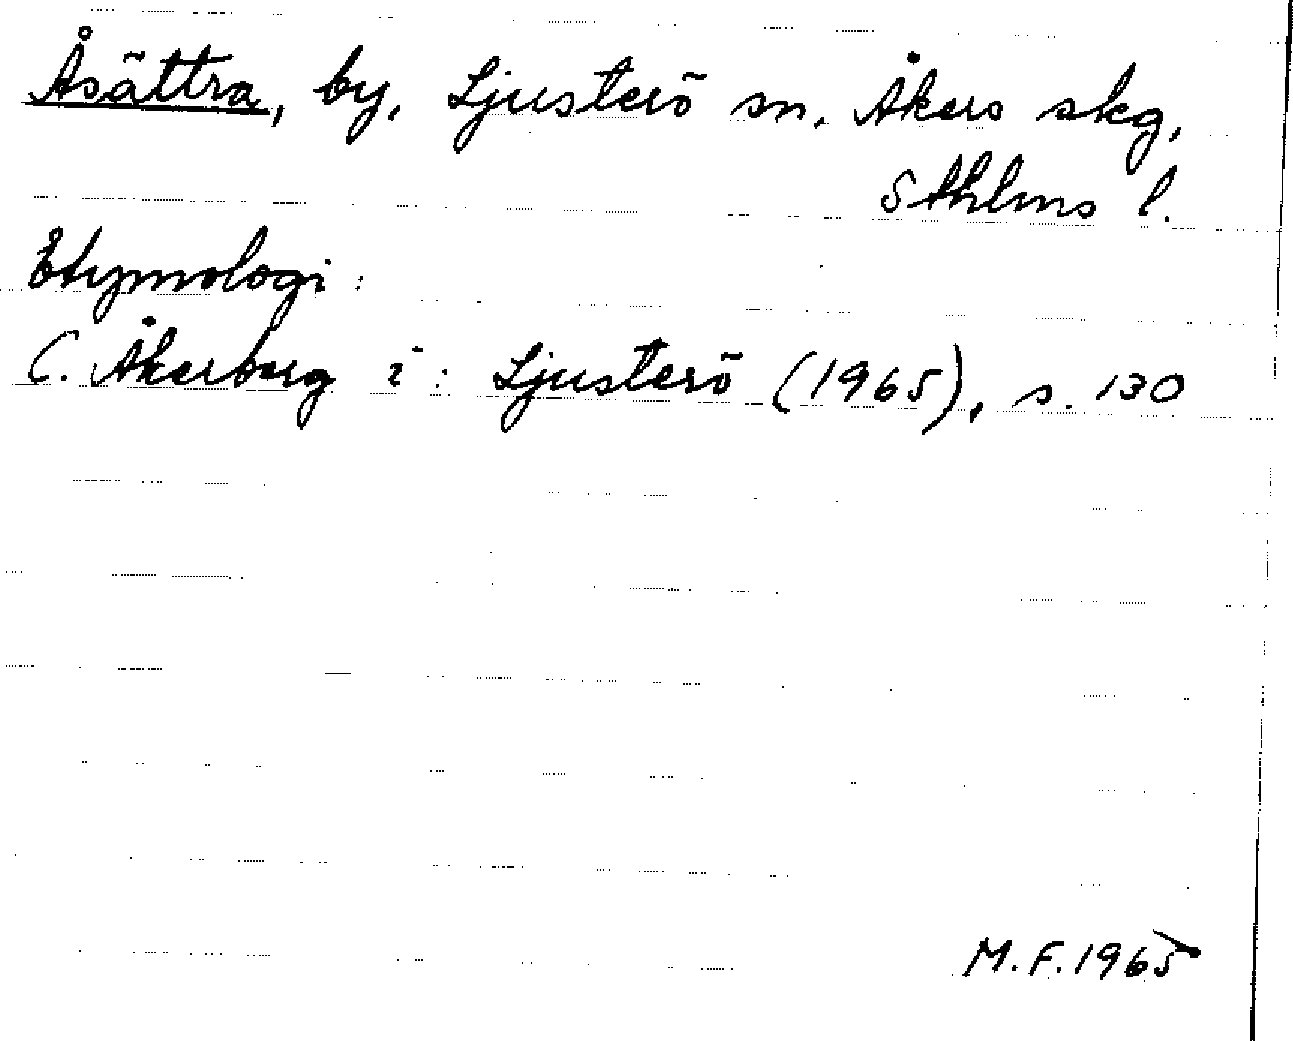 Åsättra, by, Ljusterö sn, Åkers skg,
Sthlms l.
Etymologi:
C. Åkerberg i: Ljusterö (1965), s. 130
M.F. 1965